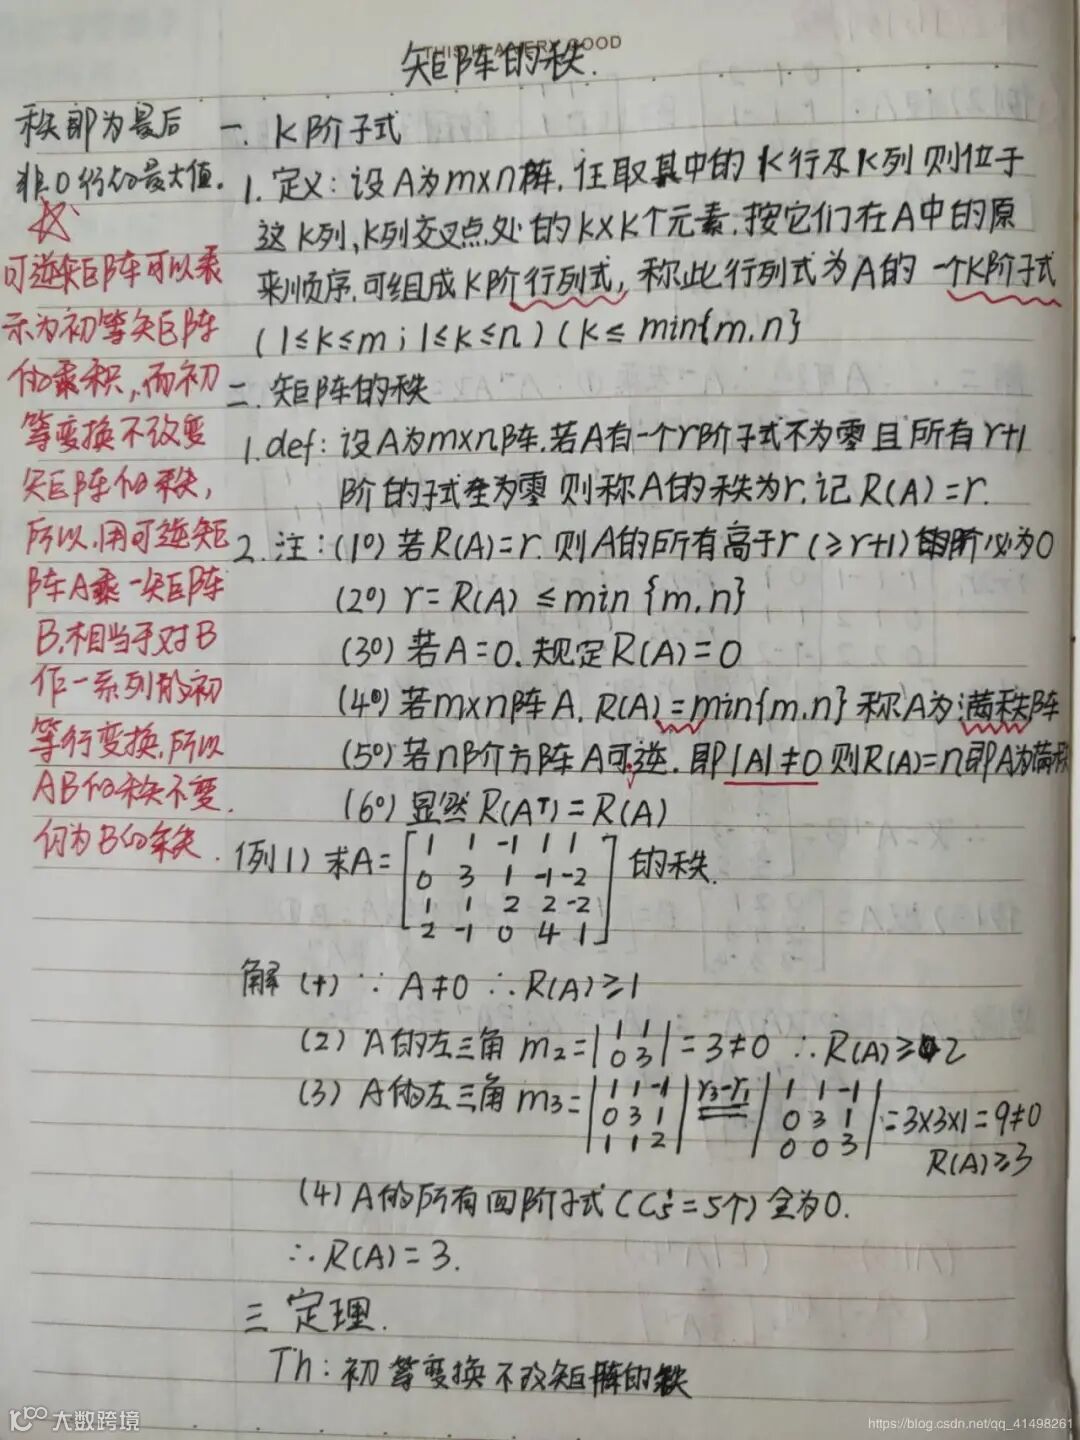 THIS IS A VERY GOOD
矩阵的秩.
秩即为最后
非0行的最大值.
可逆矩阵可以表
示为初等矩阵
的乘积,而初
等变换不改变
矩阵的秩,
所以,用可逆矩
阵A乘一矩阵
B,相当于对B
作一系列的初
等行变换,所以
AB的秩不变.
仍为B的秩.
一. K阶子式
1. 定义: 设A为m×n阵, 任取其中的K行及K列则位于
这K列,K列交叉点处的K×K个元素,按它们在A中的原
来顺序,可组成K阶行列式,称此行列式为A的一个K阶子式
(1≤K≤m;1≤K≤n)(K≤min{m,n}
二. 矩阵的秩
1.def: 设A为m×n阵.若A有一个r阶子式不为零且所有r+1
阶的子式全为零则称A的秩为r,记R(A)=r.
2.注: (1°)若R(A)=r.则A的所有高于r(≥r+1)的阶必为0
(2°) r=R(A)≤min{m,n}
(3°)若A=0.规定R(A)=0
(4°)若m×n阵A, R(A)=min{m,n}称A为满秩阵
(5°)若n阶方阵A可逆.即|A|≠0则R(A)=n即A为满秩
(6°)显然R(Aᵀ)=R(A)
例1)求A= 的秩.
1 1 -1 1 1
0 3 1 -1 -2
1 1 2 2 -2
2 -1 0 4 1
解 (1) ∵ A≠0 ∴R(A)≥1
(2) A的左三角 m2=|1 1| =3≠0 ∴R(A)≥2
|0 3|
(3) A的左三角 m3=|1 1 -1| r3-r1 |1 1 -1|
|0 3 1| |0 3 1| =3×3×1=9≠0
|1 1 2| |0 0 3| R(A)≥3
(4) A的所有四阶子式( =5个)全为0.
∴R(A)=3.
三 定理.
Th: 初等变换不改矩阵的秩
大数跨境
https://blog.csdn.net/qq_41498261